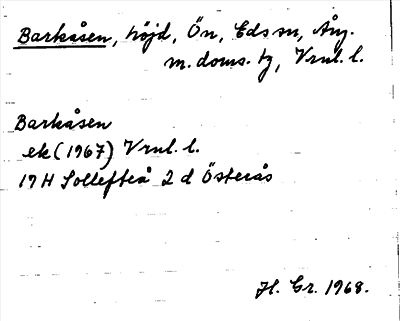 Barkåsen, höjd, Ön, Eds sn, Ång.
m. doms. tg, Vrnl. l.
Barkåsen
ek (1967) Vrnl. l.
19H Sollefteå 2d Österås
H. Gr. 1968.